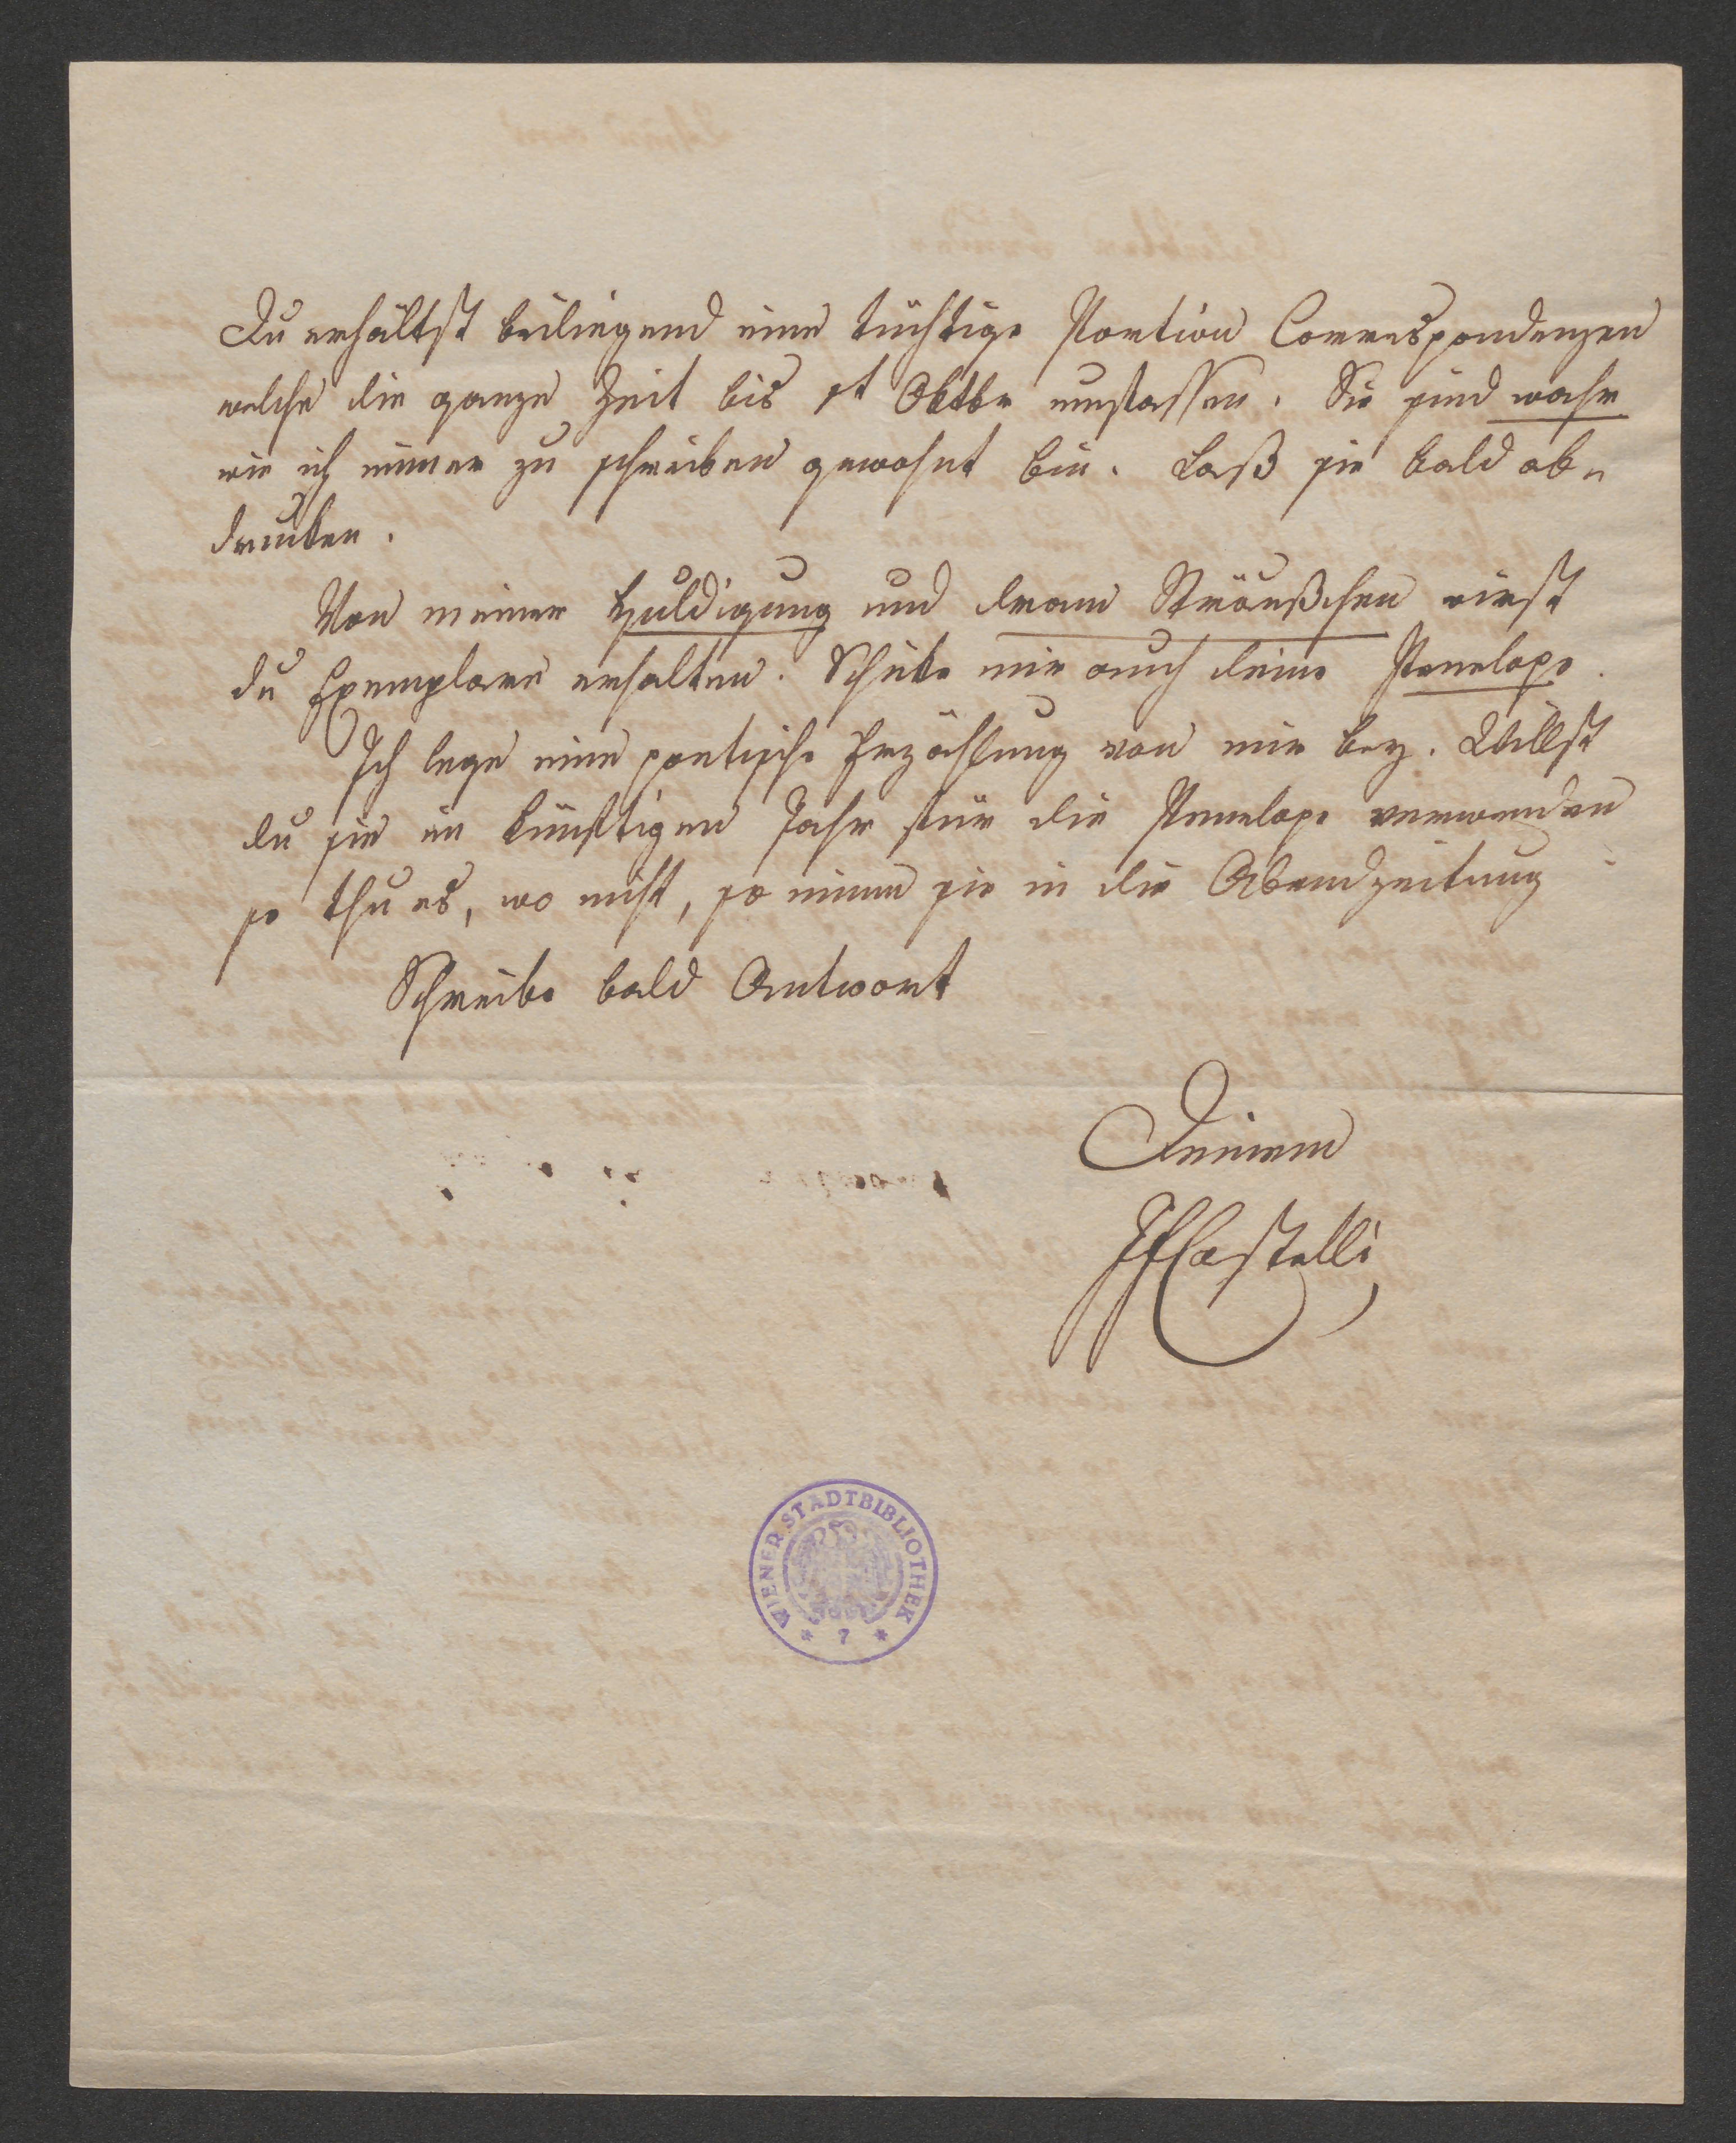 Du erhältst beiliegend eine tüchtige Portion Correspondenzen
welche die ganze Zeit bis 1t Oktbr umfassen. Sie sind wahr
wie ich immer zu schreiben gewohnt bin. Laß sie bald ab-
drucken.
Von meiner Huldigung und dram Sträußchen wirst
du Exemplare erhalten. Schicke mir auch deine Penelope.
Ich lege eine poetische Erzählung von mir bey. Willst
du sie im künftigen Jahr für die Penelope verwenden
so thu es, wo nicht, so nimm sie in die Abendzeitung
Schreibe bald Antwort
Deinem
JFCastelli
WIENER STADTBIBLIOTHEK
* 7 *